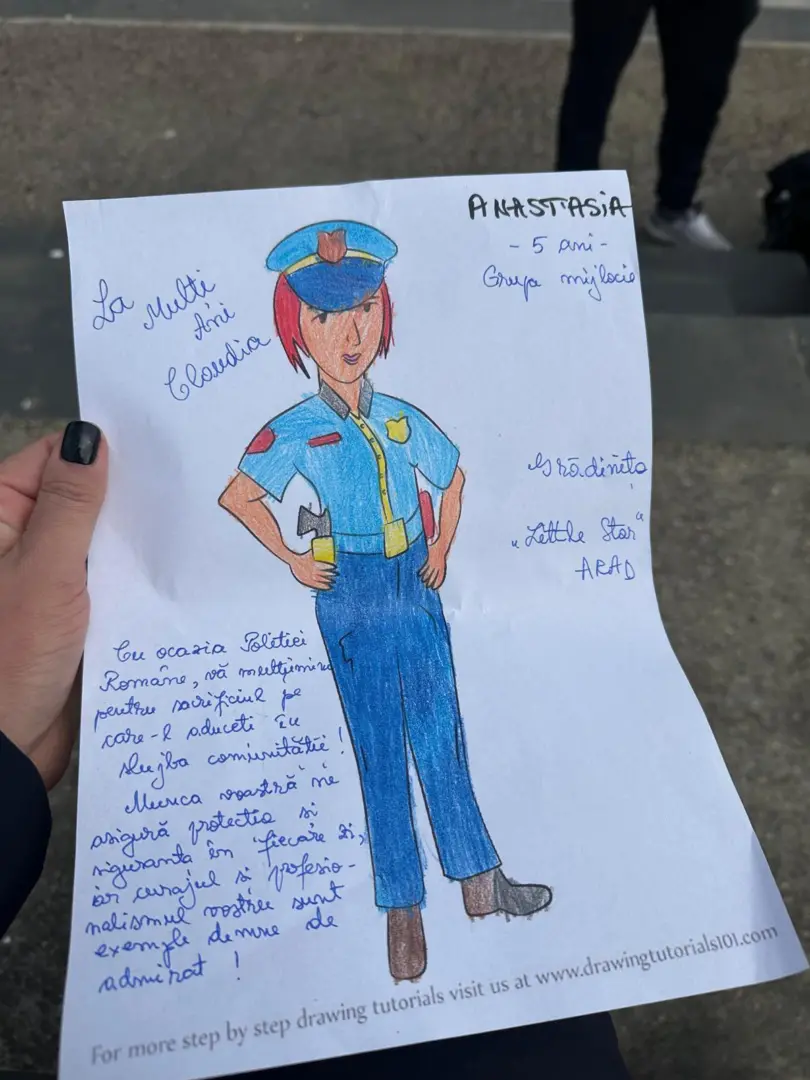 La
Multi
Ani
Claudia
ANASTASIA
- 5 ani -
Grupa mijlocie
Grădinița
„Little Star“
ARAD
Cu ocazia Politiei
Române, vă mulțumim
pentru sacrificiul pe
care-l aduceti în
slujba comunitătii!
Munca voastră ne
asigură protectia si
siguranta în fiecare zi,
iar curajul si profesio-
nalismul vostru sunt
exemple demne de
admirat!
For more step by step drawing tutorials visit us at www.drawingtutorials101.com